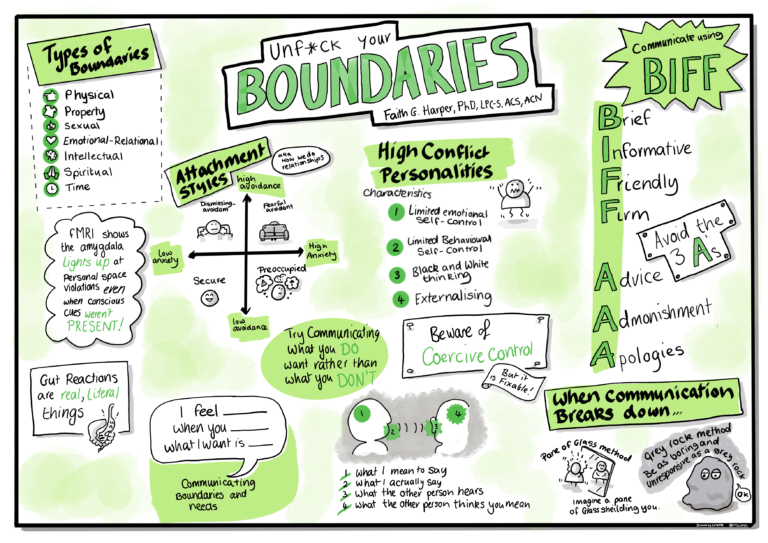 Unf*ck your
BOUNDARIES
Faith G. Harper, PhD, LPC-S, ACS, ACN
Types of
Boundaries
Physical
Property
Sexual
Emotional-Relational
Intellectual
Spiritual
Time
fMRI shows
the amygdala
lights up at
Personal space
violations even
when conscious
cues weren't
PRESENT!
Gut Reactions
are real, literal
things
Attachment
Styles
aka
How we do
relationships
high
avoidance
Dismissing
avoidant
Fearful
avoidant
Low
anxiety
High
Anxiety
Secure
Preoccupied
low
avoidance
High Conflict
Personalities
Characteristics
1 Limited emotional
Self-control
2 Limited Behavioural
Self-Control
3 Black and White
thinking
4 Externalising
Try Communicating
what you DO
want rather than
what you DON'T
Beware of
Coercive Control
But it
is Fixable!
I feel ____
when you ____
what I want is ____
Communicating
Boundaries and
needs
1
2
3
4
1 What I mean to say
2 What I actually say
3 What the other person hears
4 What the other person thinks you mean
Communicate using
BIFF
Brief
Informative
Friendly
Firm
Avoid the
3 As
Advice
Admonishment
Apologies
When Communication
Breaks down...
Pane of Glass method
Imagine a pane
of Glass sheilding you.
Grey rock method
Be as boring and
unresponsive as a grey rock
OK